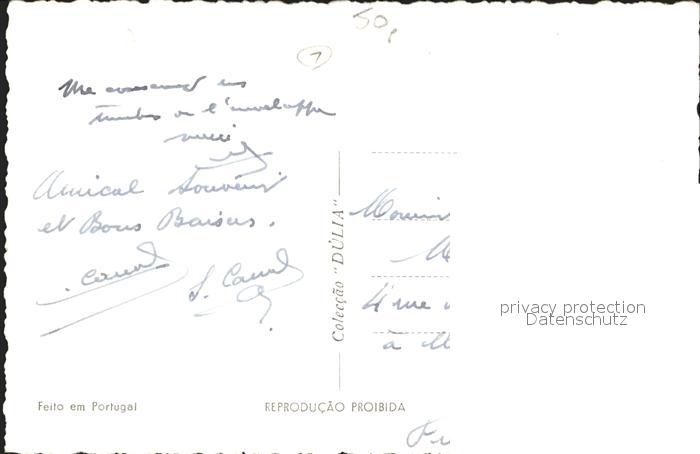 50,
1
Me conserver les
timbres ou l'enveloppe
merci
Amical Souvenir
et Bons Baisers.
Colecção "DÚLIA"
4 rue
à M
privacy protection
Datenschutz
Feito em Portugal
REPRODUÇÃO PROIBIDA